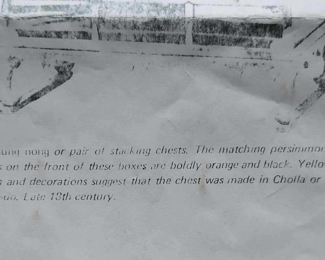 nong or pair of stacking chests. The matching persimmon
on the front of these boxes are boldly orange and black. Yello
s and decorations suggest that the chest was made in Cholla or
-do. Late 18th century.